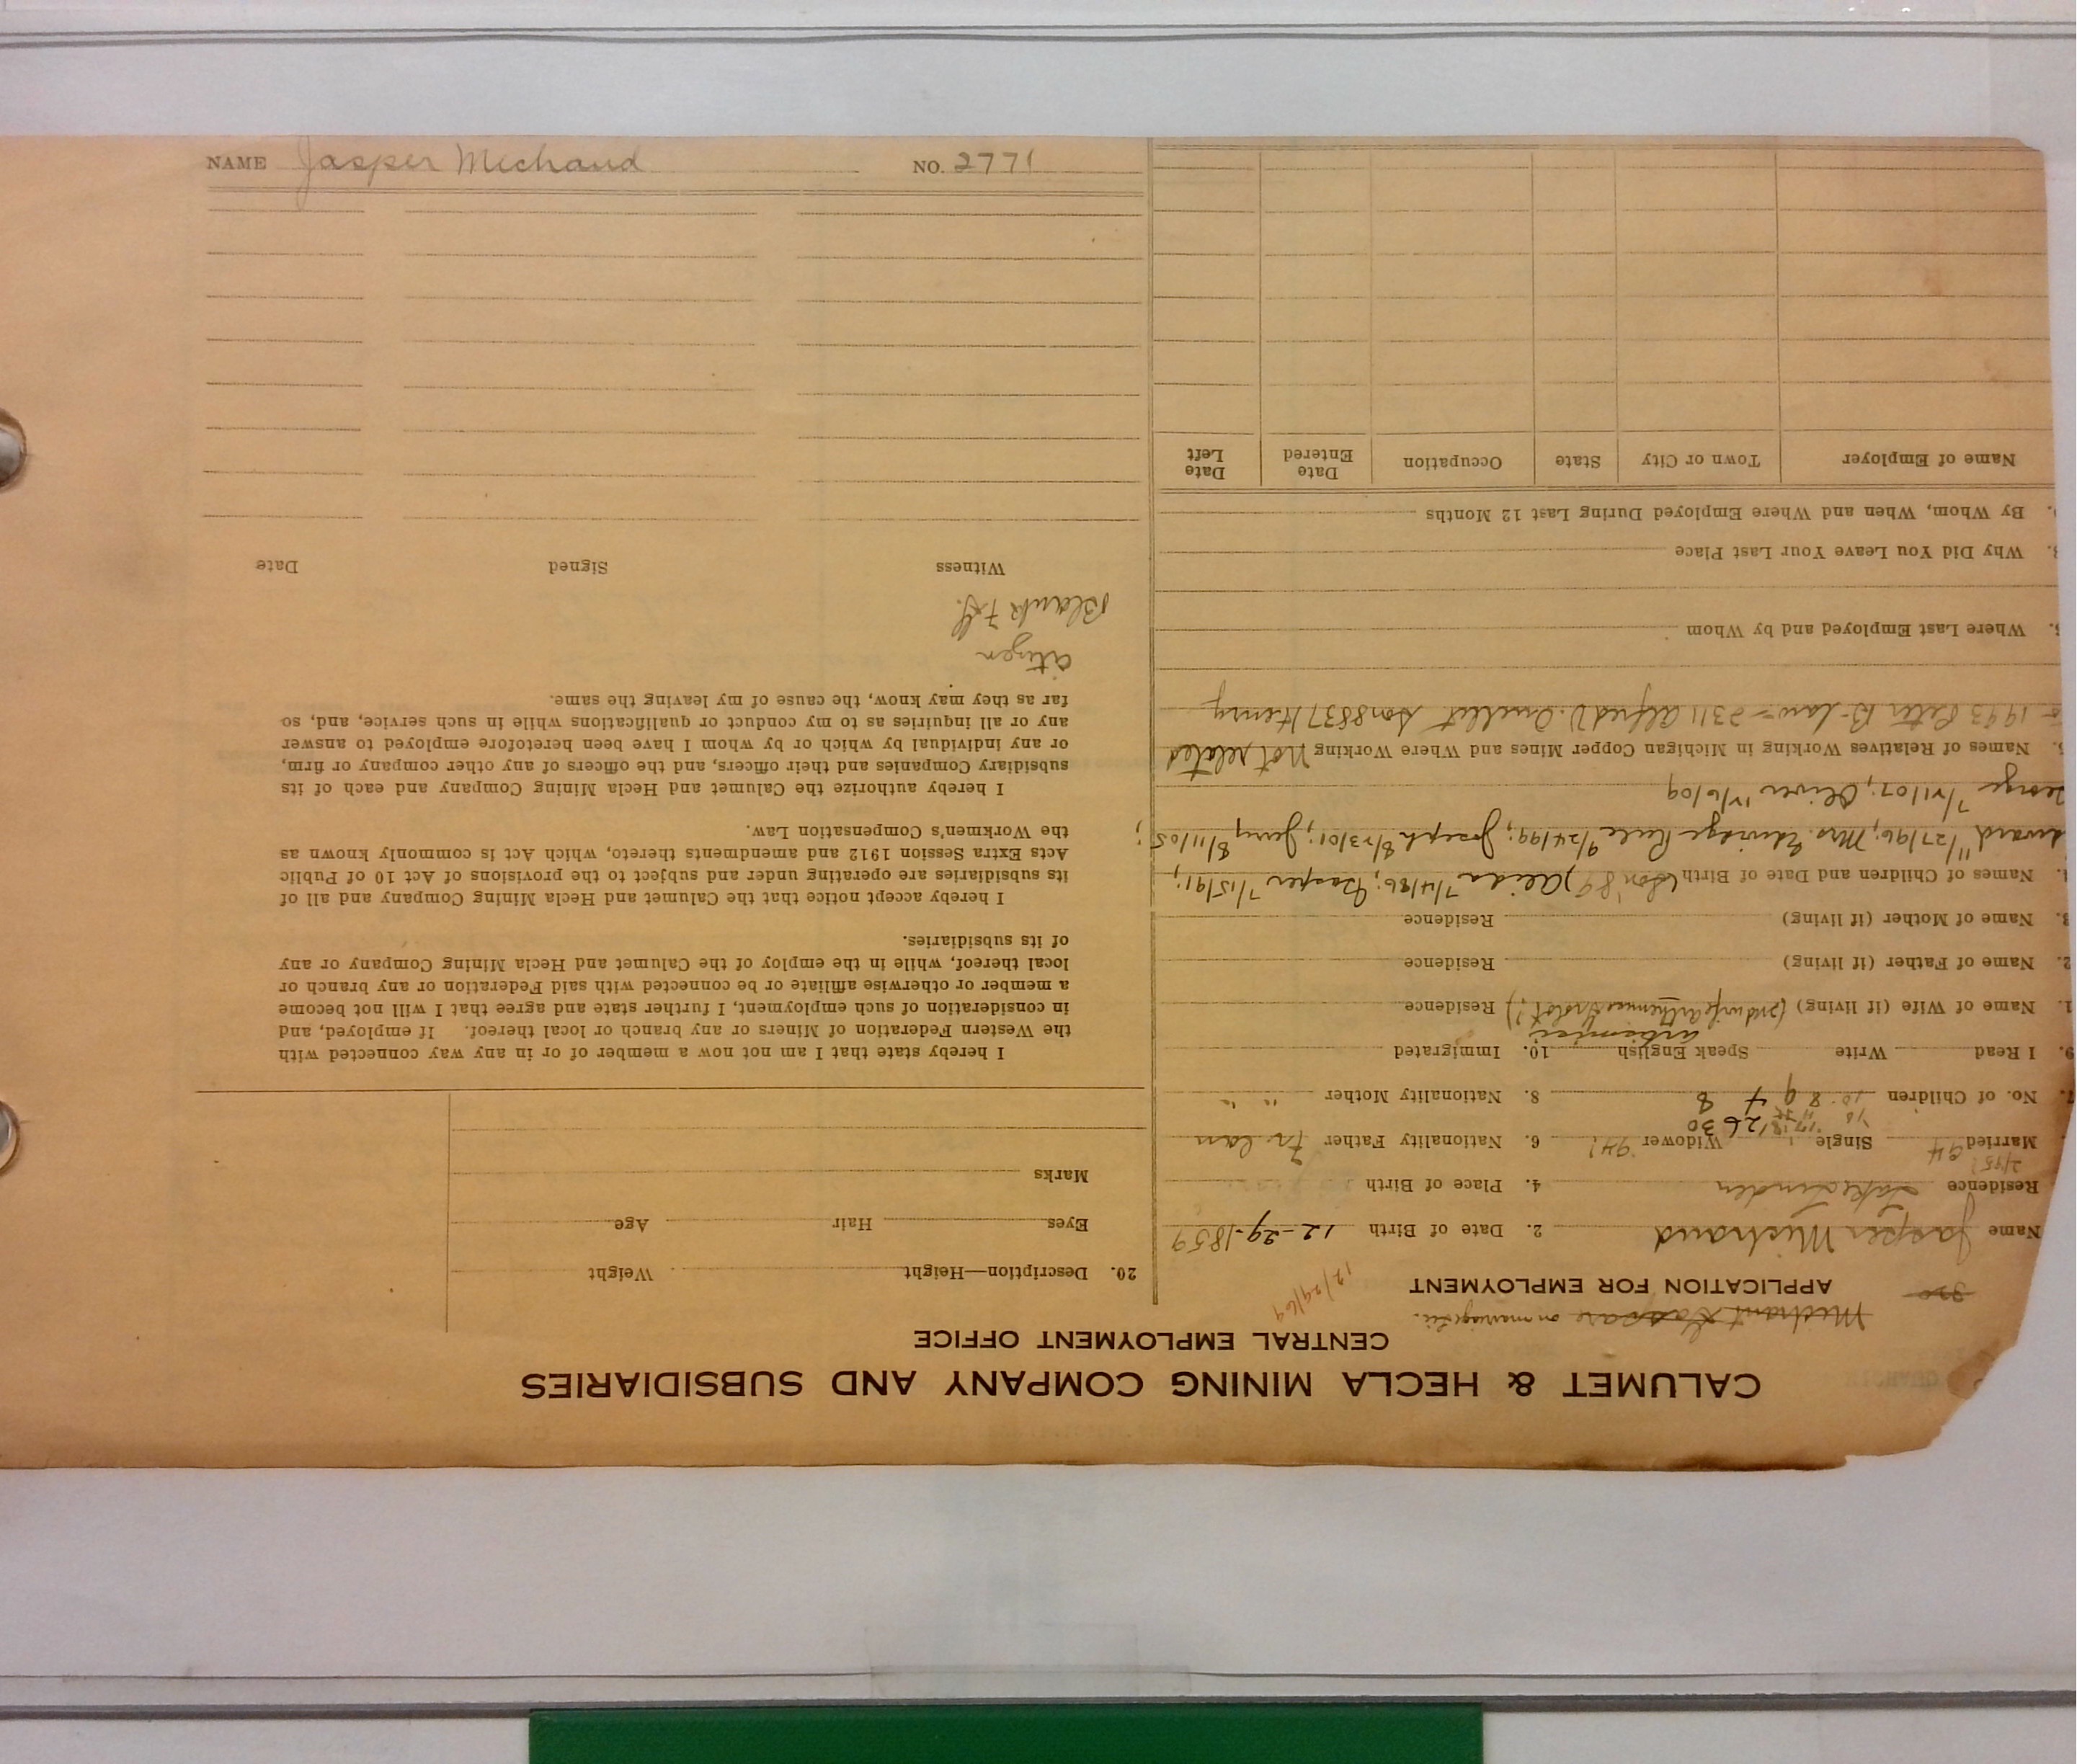 CALUMET & HECLA MINING COMPANY AND SUBSIDIARIES
CENTRAL EMPLOYMENT OFFICE
on marriage lic.
320
APPLICATION FOR EMPLOYMENT
12/29/69
Name Jasper Michaud 2. Date of Birth 12-29-1859
Residence Lake Linden 4. Place of Birth
Married 94 Single Widower 94? 6. Nationality Father Fr Can
7. No. of Children 10 8 9 7 8 8. Nationality Mother " "
9. I Read Write Speak English 10. Immigrated
1. Name of Wife (if living) (2nd wife Residence
2. Name of Father (if living) Residence
3. Name of Mother (if living) Residence
4. Names of Children and Date of Birth (Son '89) Alida 7/4/86; Gasper 7/15/91;
11/27/96; Mrs. Edwidge 9/24/99; Joseph 8/23/01; Jerry 8/11/05;
George 7/21/07; Oliver 12/6/09
5. Names of Relatives Working in Michigan Copper Mines and Where Working Not related
1993 Peter B-law - 2311 Alfred D. Son 8837 Henry
Where Last Employed and by Whom
Why Did You Leave Your Last Place
By Whom, When and Where Employed During Last 12 Months
Name of Employer Town or City State Occupation Date Entered Date Left
20. Description—Height Weight
Eyes Hair Age
Marks
I hereby state that I am not now a member of or in any way connected with
the Western Federation of Miners or any branch or local thereof. If employed, and
in consideration of such employment, I further state and agree that I will not become
a member or otherwise affiliate or be connected with said Federation or any branch or
local thereof, while in the employ of the Calumet and Hecla Mining Company or any
of its subsidiaries.
I hereby accept notice that the Calumet and Hecla Mining Company and all of
its subsidiaries are operating under and subject to the provisions of Act 10 of Public
Acts Extra Session 1912 and amendments thereto, which Act is commonly known as
the Workmen's Compensation Law.
I hereby authorize the Calumet and Hecla Mining Company and each of its
subsidiary Companies and their officers, and the officers of any other company or firm,
or any individual by which or by whom I have been heretofore employed to answer
any or all inquiries as to my conduct or qualifications while in such service, and, so
far as they may know, the cause of my leaving the same.
Citizen
Blank
Witness Signed Date
NAME Jasper Michaud NO. 2771